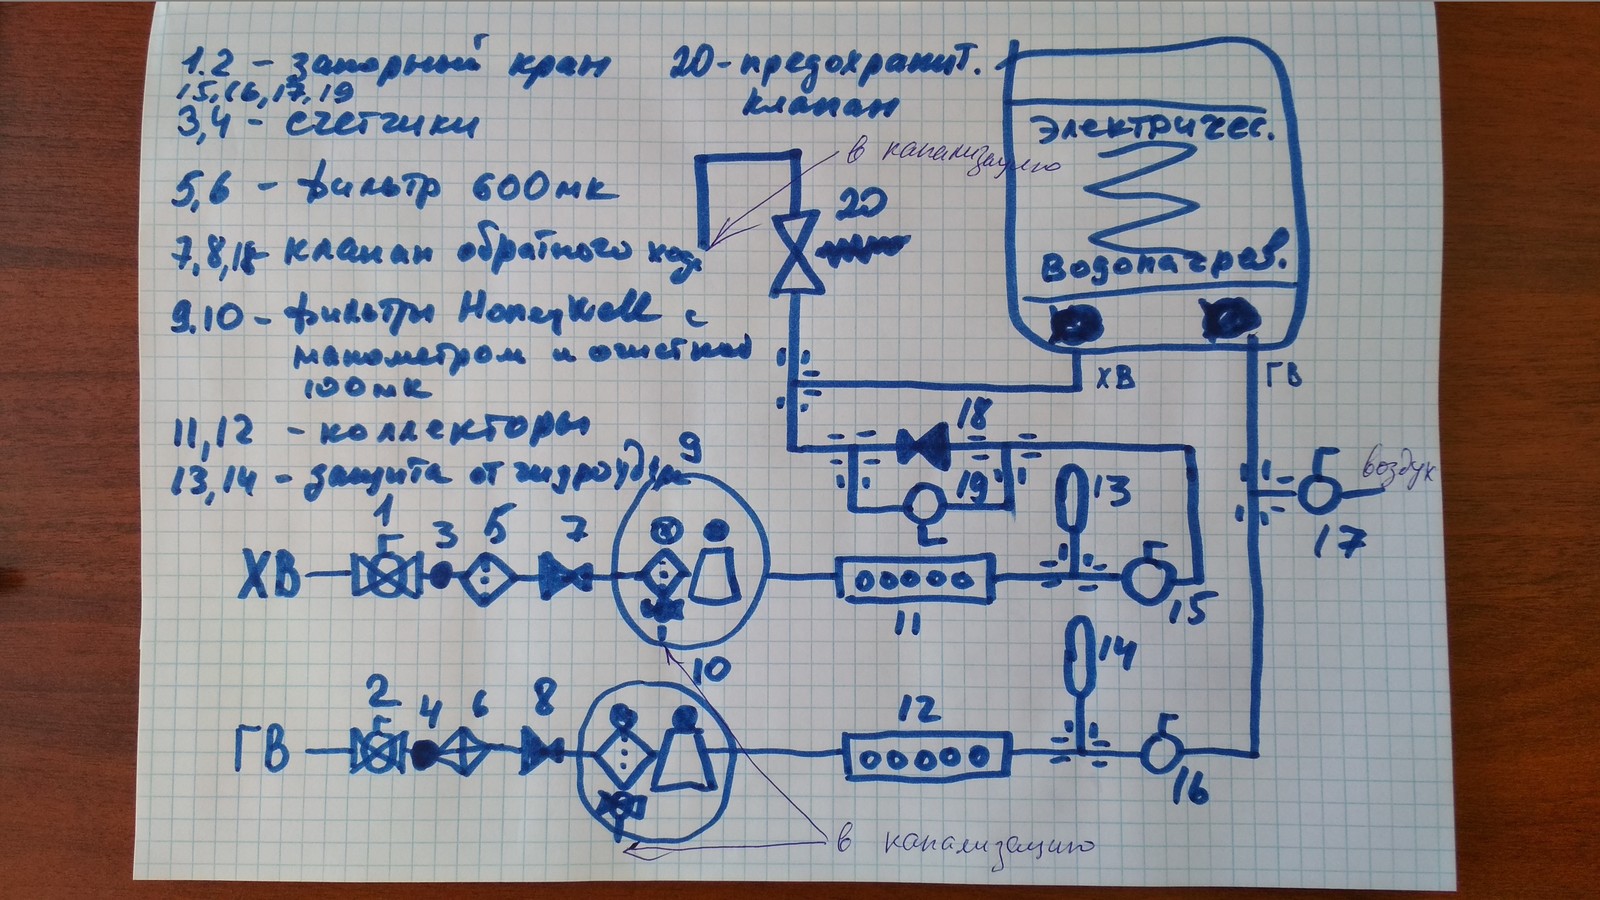 1.2 - запорный кран
15,16,17,19
3,4 - счетчики
5,6 - фильтр 600мк
7,8,18 - клапан обратного хода
9.10 - фильтры Honeywell с
манометром и очисткой
100мк
11,12 - коллекторы
13,14 - защита от гидроудара
20 - предохранит.
клапан
в канализацию
20
Электричес.
Водонагрев.
ХВ
ГВ
18
19
13
воздух
17
9
ХВ
1
3
5
7
11
15
10
14
ГВ
2
4
6
8
12
16
в канализацию